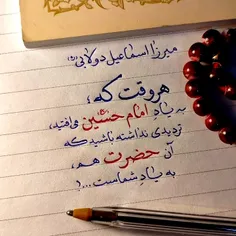 میرزا اسماعیل دولابی(ره)
هر وقت که،
به یاد امام حسین(ع) می‌افتید،
تردیدی نداشته باشید که
آن حضرت هم،
به یاد شماست...!